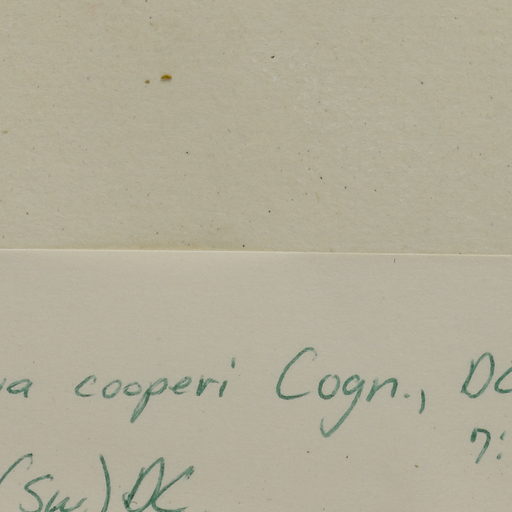 cooperi Cogn., DC
7:
(Sw.) DC